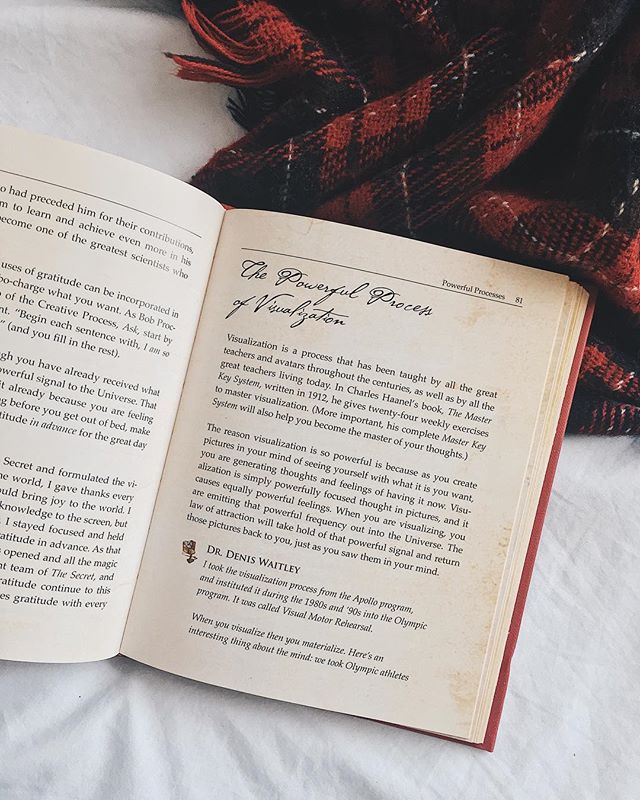 o had preceded him for their contributions,
m to learn and achieve even more in his
become one of the greatest scientists who
uses of gratitude can be incorporated in
bo-charge what you want. As Bob Proc-
n of the Creative Process, Ask, start by
nt. "Begin each sentence with, I am so
" (and you fill in the rest).
gh you have already received what
powerful signal to the Universe. That
it already because you are feeling
ng before you get out of bed, make
titude in advance for the great day
Secret and formulated the vi-
he world, I gave thanks every
ould bring joy to the world. I
knowledge to the screen, but
. I stayed focused and held
ratitude in advance. As that
s opened and all the magic
nt team of The Secret, and
ratitude continue to this
es gratitude with every
Powerful Processes 81
The Powerful Process
of Visualization
Visualization is a process that has been taught by all the great
teachers and avatars throughout the centuries, as well as by all the
great teachers living today. In Charles Haanel's book, The Master
Key System, written in 1912, he gives twenty-four weekly exercises
to master visualization. (More important, his complete Master Key
System will also help you become the master of your thoughts.)
The reason visualization is so powerful is because as you create
pictures in your mind of seeing yourself with what it is you want,
you are generating thoughts and feelings of having it now. Visu-
alization is simply powerfully focused thought in pictures, and it
causes equally powerful feelings. When you are visualizing, you
are emitting that powerful frequency out into the Universe. The
law of attraction will take hold of that powerful signal and return
those pictures back to you, just as you saw them in your mind.
DR. DENIS WAITLEY
I took the visualization process from the Apollo program,
and instituted it during the 1980s and '90s into the Olympic
program. It was called Visual Motor Rehearsal.
When you visualize then you materialize. Here's an
interesting thing about the mind: we took Olympic athletes